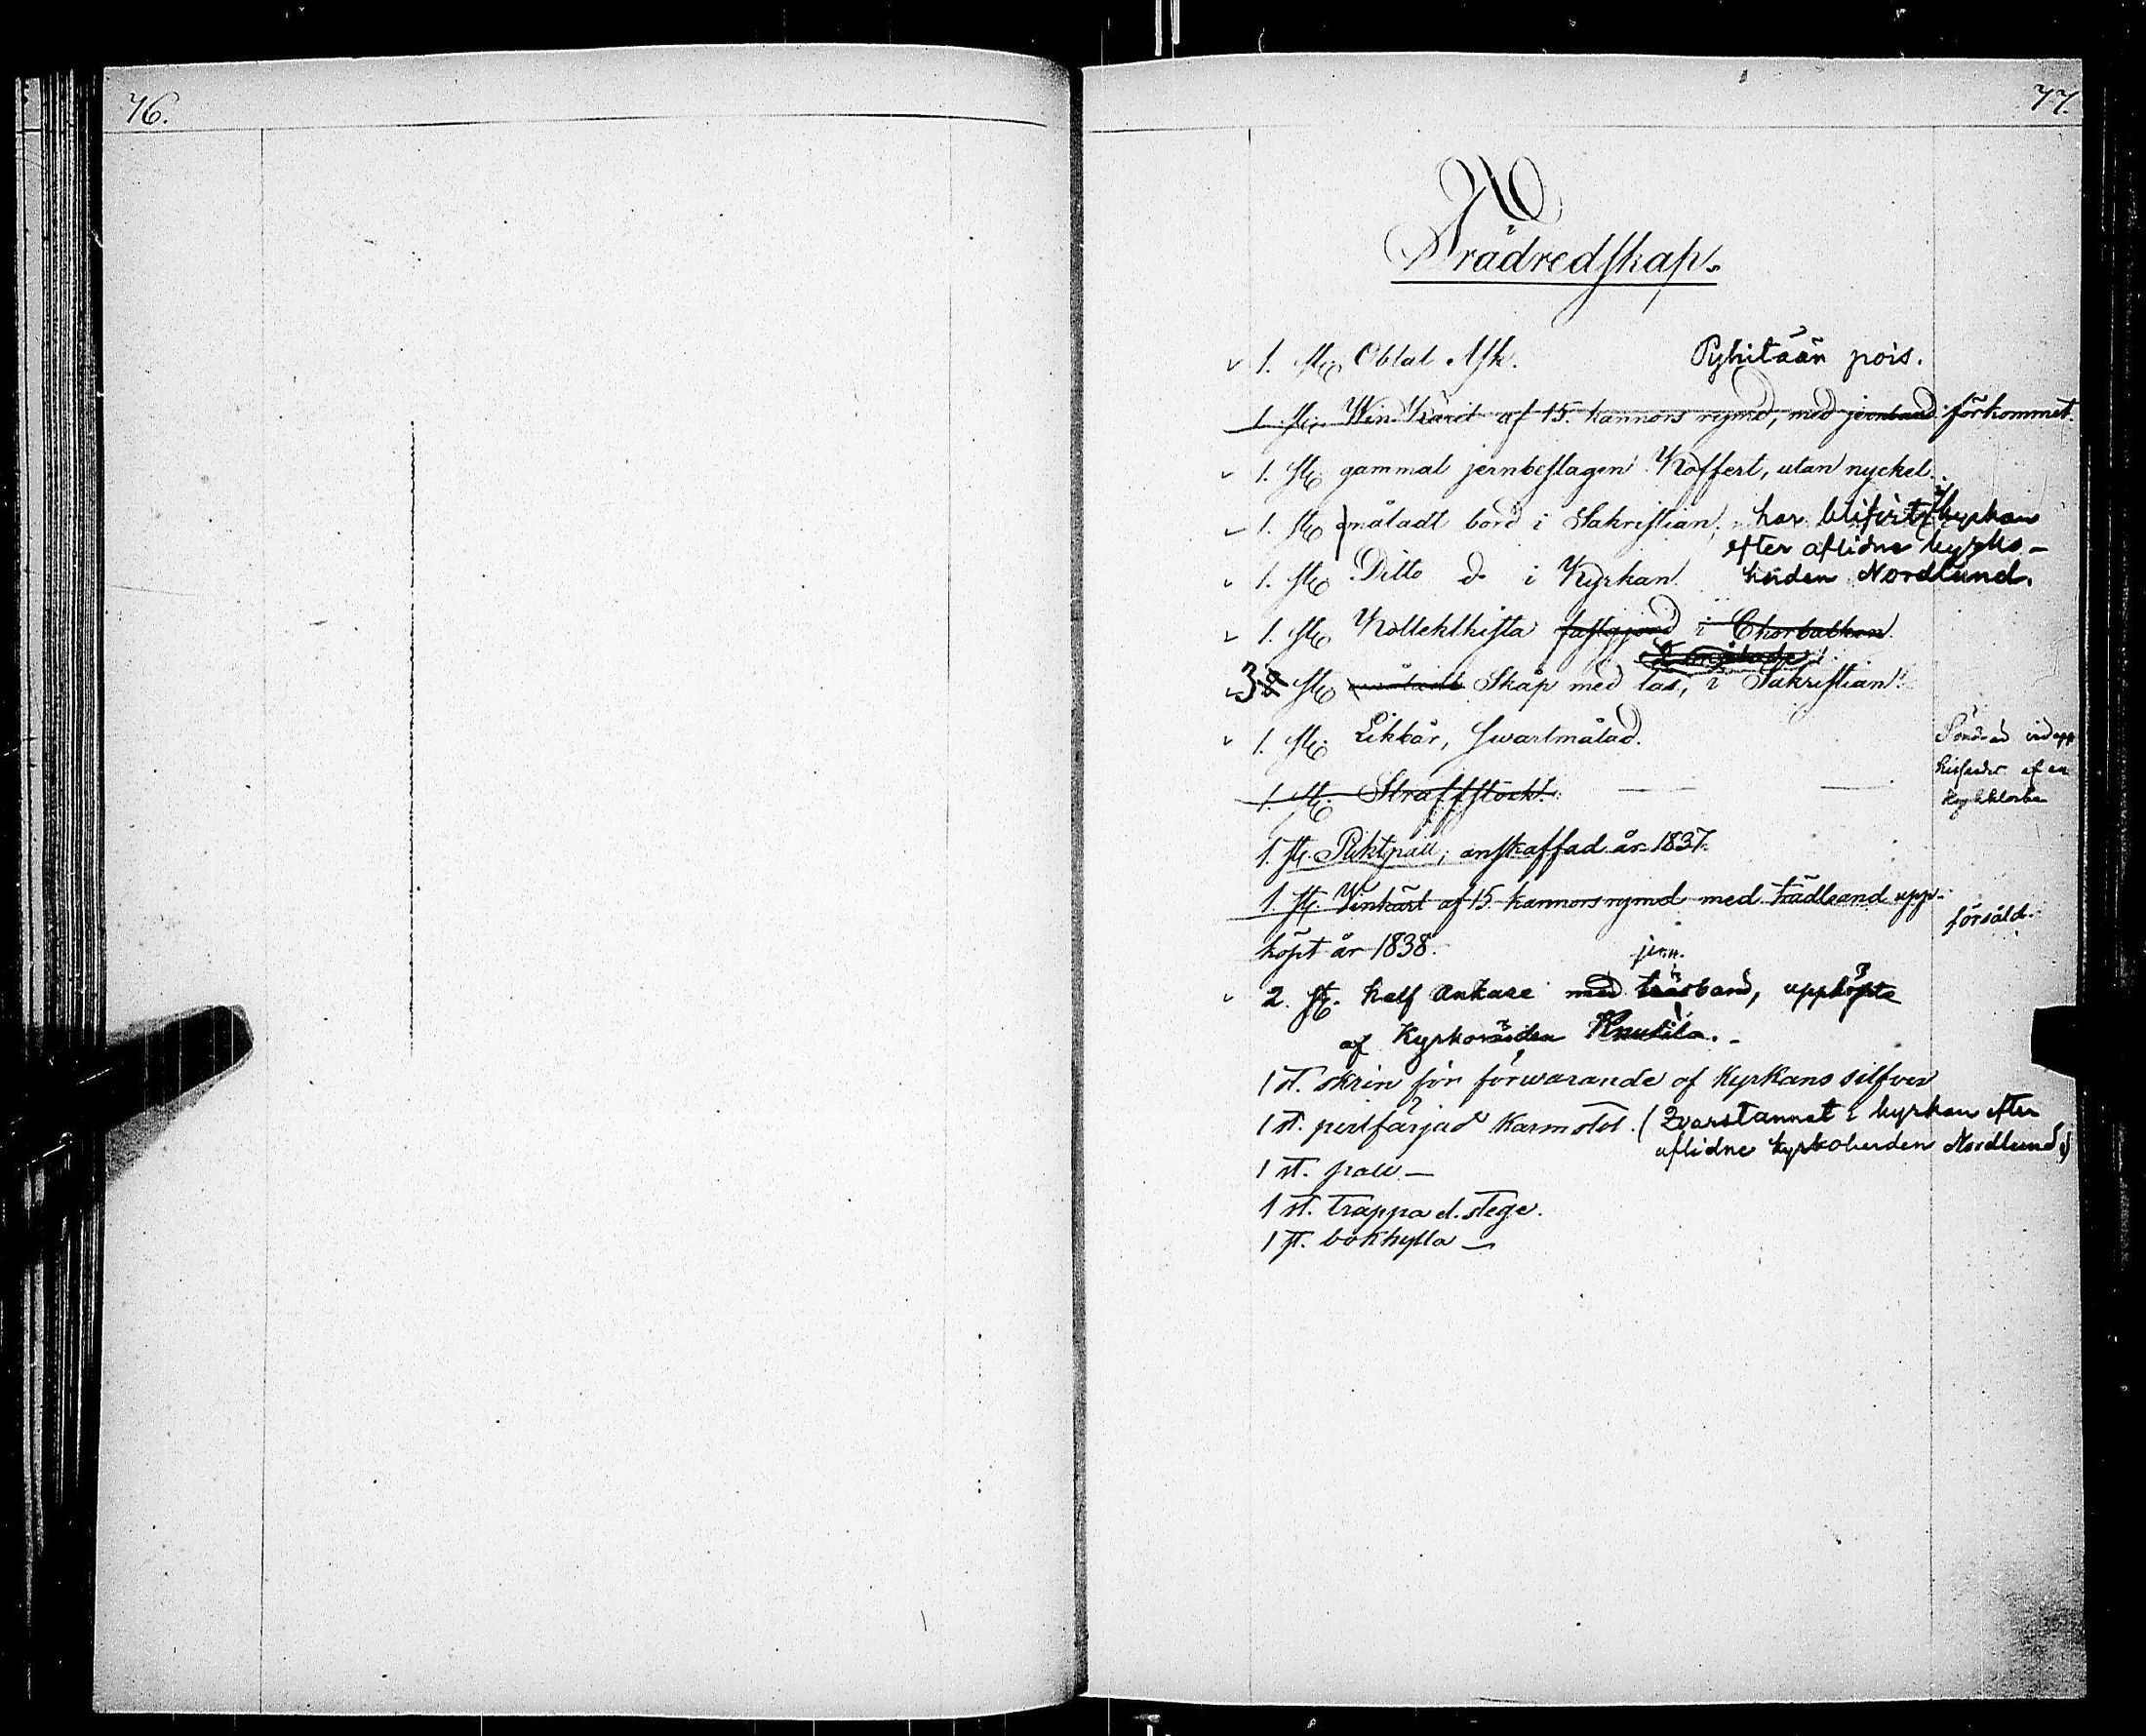 76.
77.
Trädredskap.
1. st. Oblat Ask. Pyhitään pois.
1. st. Win Kärit af 15. kannors rymd, med jernband. förkommet.
1. st. gammal jernbeslagen Koffert, utan nyckel.
1. st. måladt bord i Sakristian, har blifvit i kyrkan
efter aflidne kyrko-
1. st. Ditto do i Kyrkan herden Nordlund.
1. st. Kollektkista fastgjord i Chorbalken.
2 målade
3 st. omåladt Skåp med lås, i Sakristian.
1. st. Likbår, swartmålad.
Söndrad vid upp
af en
1. st. Straffstock.
1. st. Pliktpall, anskaffad år 1837.
1. st. Vinkärl af 15 kannors rymd med trädband upp-
försåld.
köpt år 1838.
jern.
2. st. half Ankare med träsband, uppköpte
af Kyrkovärden Knutila.
1 st. skrin för förwarande af Kyrkans silfver
1 st. perlfärjad Karmstol. (Qvarstannat i kyrkan efter
aflidne kyrkoherden Nordlund)
1 st. pall —
1 st. trappa el. stege.
1 st. bokhylla —